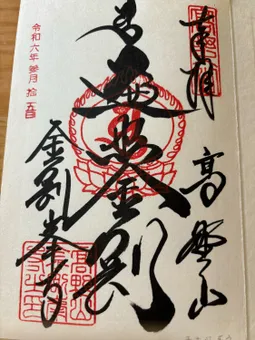 奉拝
高野山
遍照金剛
金剛峯寺
令和六年参月拾五日